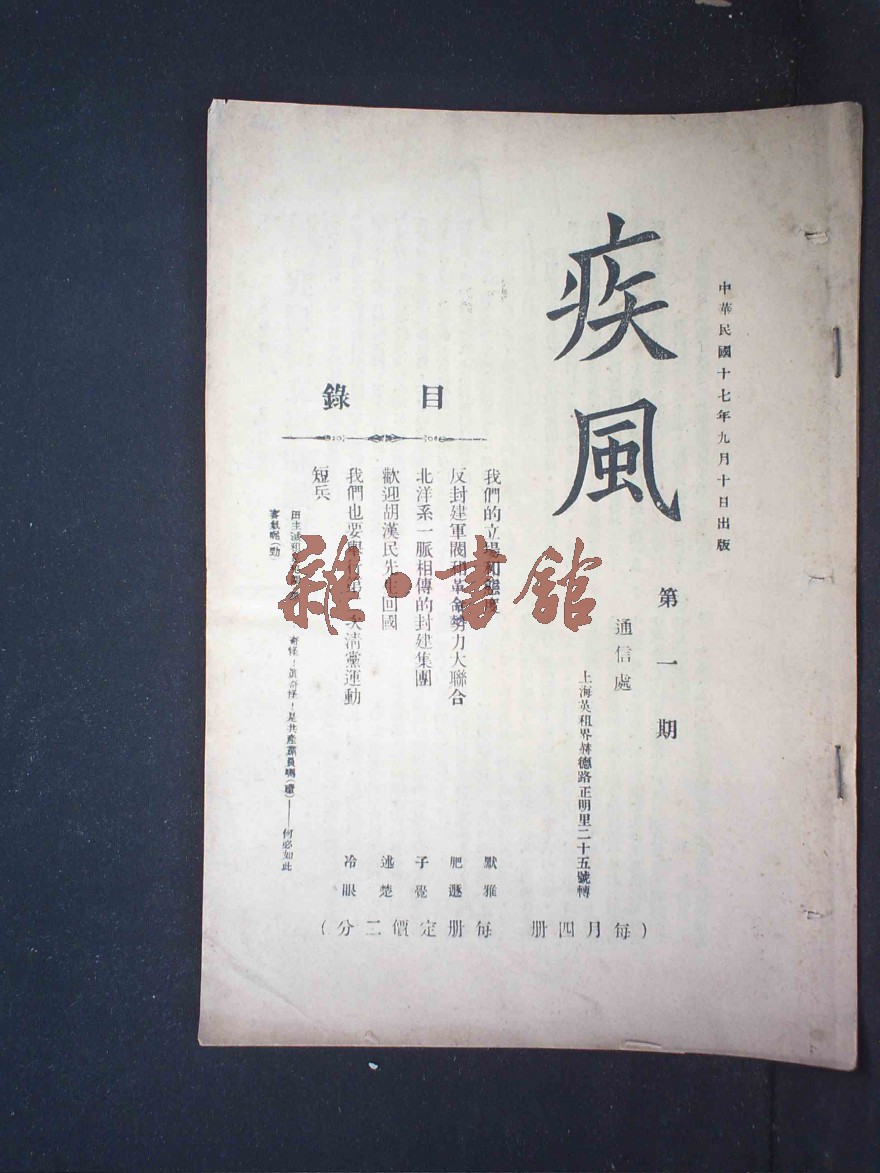 中華民國十七年九月十日出版
疾風
第一期
通信處
上海英租界赫德路正明里二十五號轉
目錄
我們的立場和態度 默雅
反封建軍閥和革命勢力大聯合 肥遯
北洋系一脈相傳的封建集團 子覺
歡迎胡漢民先生回國 逃楚
我們也要 次清黨運動 冷眼
短兵
奇怪!真奇怪!是共產黨員嗎 何必如此
(每月四册 每册定價二分)
雜·書館